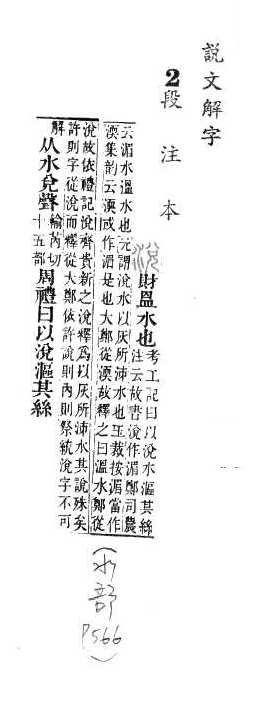 說文解字
2段注本
涗
財𥁕水也考工記曰以涗水漚其絲
注云故書涗作湄鄭司農
云湄水溫水也玄謂涗水以灰所沛水也玉裁按湄當作
渜集韵云渜或作湄是也大鄭從渜故釋之曰溫水鄭從
涗故依禮記涗齊貴新之涗釋爲以灰所沛水其說殊矣
許則字從涗而釋從大鄭依許說則內則祭統涗字不可
解从水兌聲輸芮切十五部周禮曰以涗漚其絲
(水部 P566)